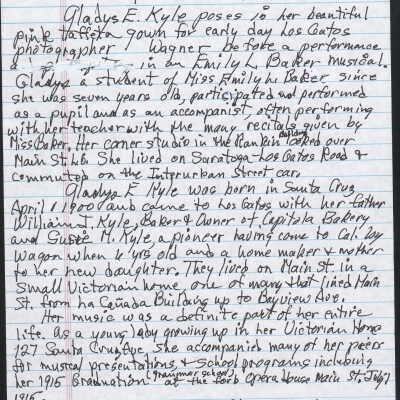 Gladys E. Kyle poses in her beautiful
pink taffeta gown for early day Los Gatos
photographer Wagner before a performance
in an Emily L. Baker musical.
Gladys a student of Miss Emily L. Baker since
she was seven years old, participated and performed
as a pupil and as an accompanist, often performing
with her teacher with the many recitals given by
Miss Baker. Her corner studio in the Rankin building looked over
Main St. L.G. She lived on Saratoga-Los Gatos Road &
commuted on the Interurban Street car.
Gladys E. Kyle was born in Santa Cruz
April 1 1900 and came to Los Gatos with her father
William J. Kyle, Baker & Owner of Capitola Bakery
and Susie M. Kyle, a pioneer having come to Cal. by
wagon when 4 yrs old and a home maker & mother
to her new daughter. They lived on Main St. in a
small Victorian home, one of many that lined Main
St. from La Cañada Building up to Bayview Ave.
Her music was a definite part of her entire
life. As a young lady growing up in her Victorian Home
127 Santa Cruz Ave. she accompanied many of her peers
for musical presentations & school programs including
her 1915 Graduation (grammar school) at the Ford Opera House Main St. July
1915